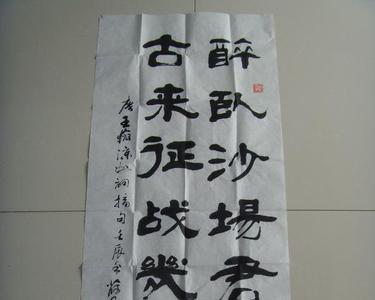 醉卧沙場君
古来征战幾
唐王翰凉州词摘句壬辰年